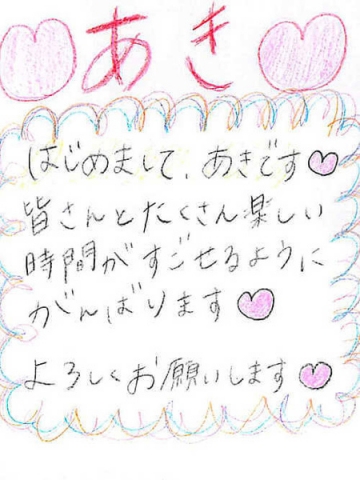 あき
はじめまして、あきです♡
皆さんとたくさん楽しい
時間がすごせるように
がんばります♡
よろしくお願いします♡